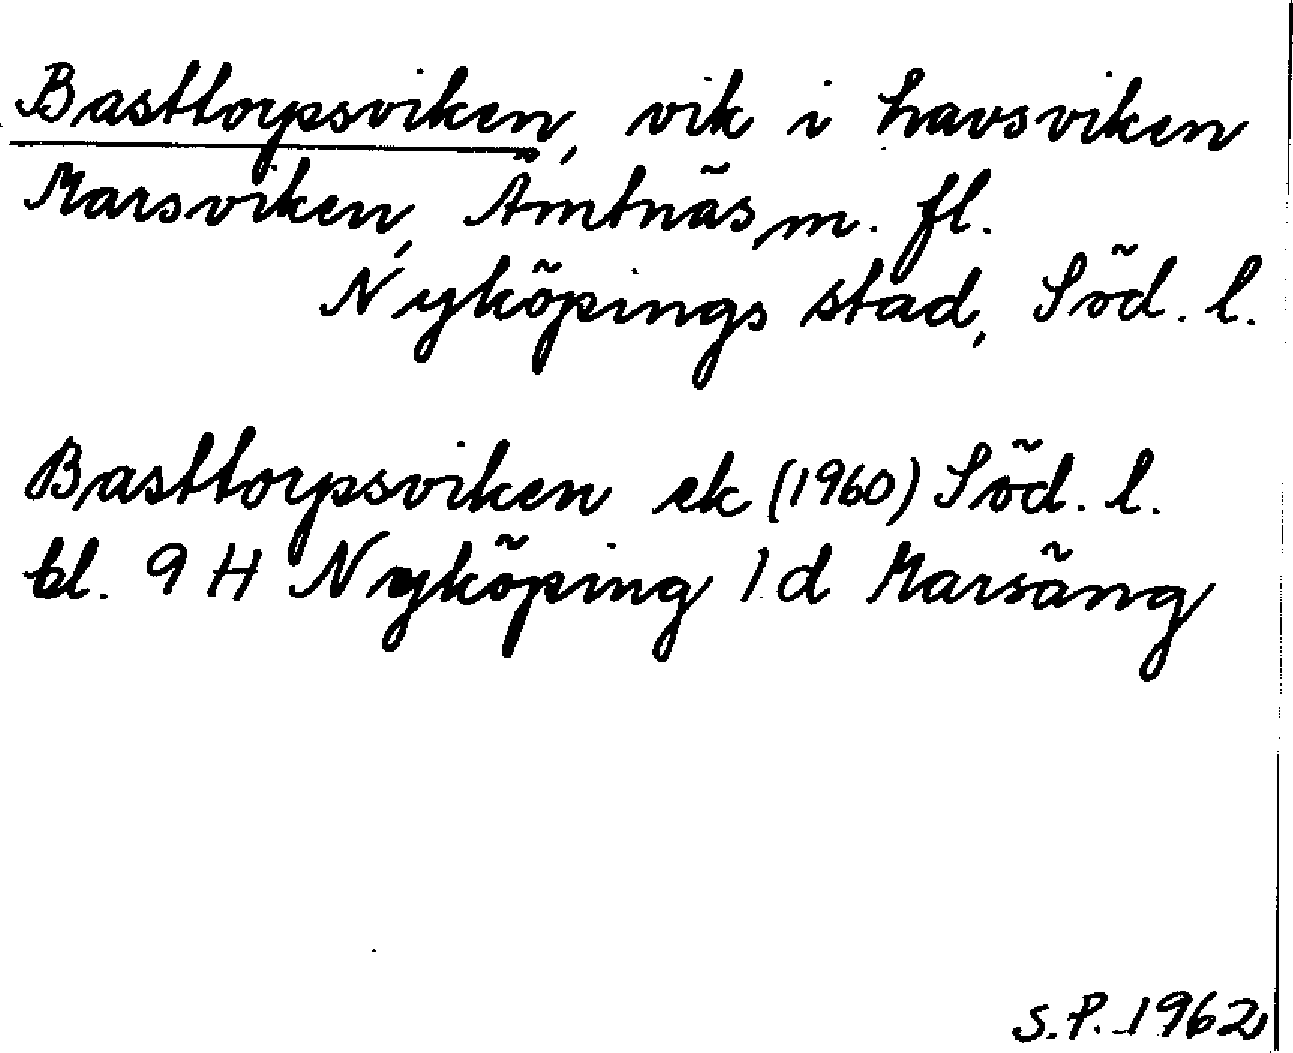 Basttorpsviken, vik i havsviken
Marsviken, Ämtnäs m. fl.
Nyköpings stad, Söd. l.
Basttorpsviken ek (1960) Söd. l.
bl. 9 H Nyköping 1 d Marsäng
S.P. 1962